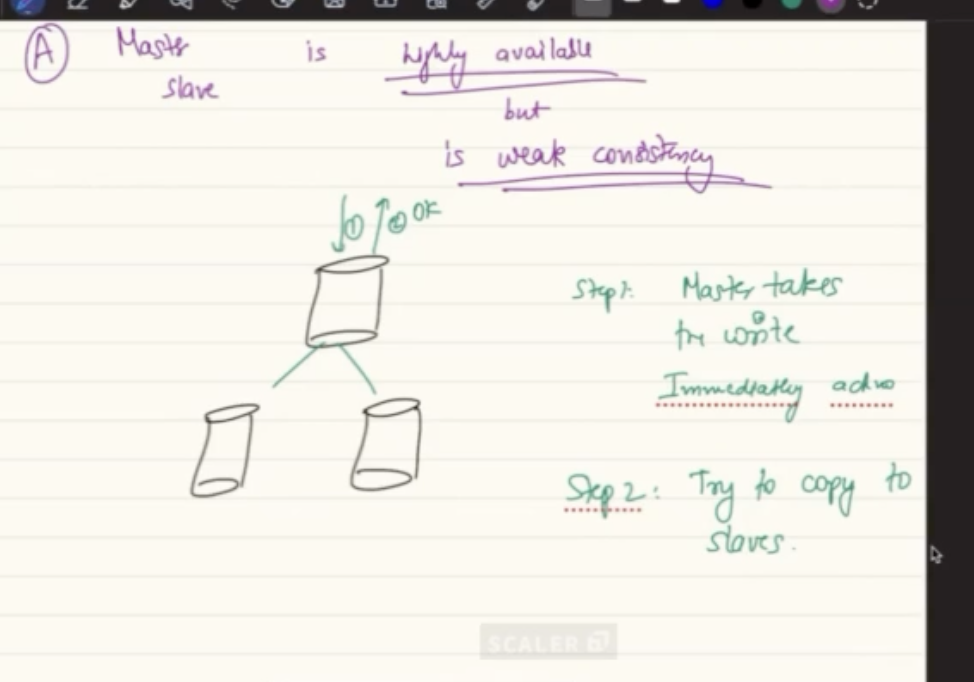 A Master is highly available
slave
but
is weak consistency
① ② OK
Step1: Master takes
the write
Immediately
Step 2: Try to copy to
slaves.
SCALER